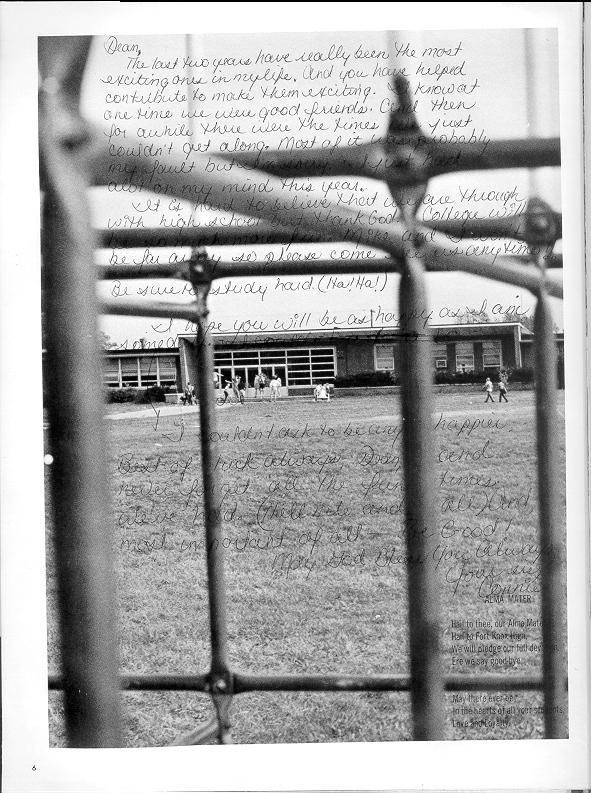 Dean,
The last two years have really been the most
exciting ones in my life. And you have helped
contribute to make them exciting. I know at
one time we were good friends. And then
for awhile there were the times just
couldn't get along. Most of it was probably
my fault but just had
alot on my mind this year.
It is hard to believe that we are through
with high school but thank God. College will
Mike and
be far away so please come see us anytime.
Be sure to study hard. (Ha! Ha!)
I hope you will be as happy as I am
someday
I couldn't ask to be any happier.
Best of luck always, and
never forget all the fun times
we've had. and
most important of all - Be Good!
May God Bless You Always
ALMA MATER
Hail to thee, our Alma Mater
Hail to Fort Knox High,
We will pledge our full devotion,
Ere we say good-bye.
May there ever be,
In the hearts of all your students,
Love and Loyalty.
6